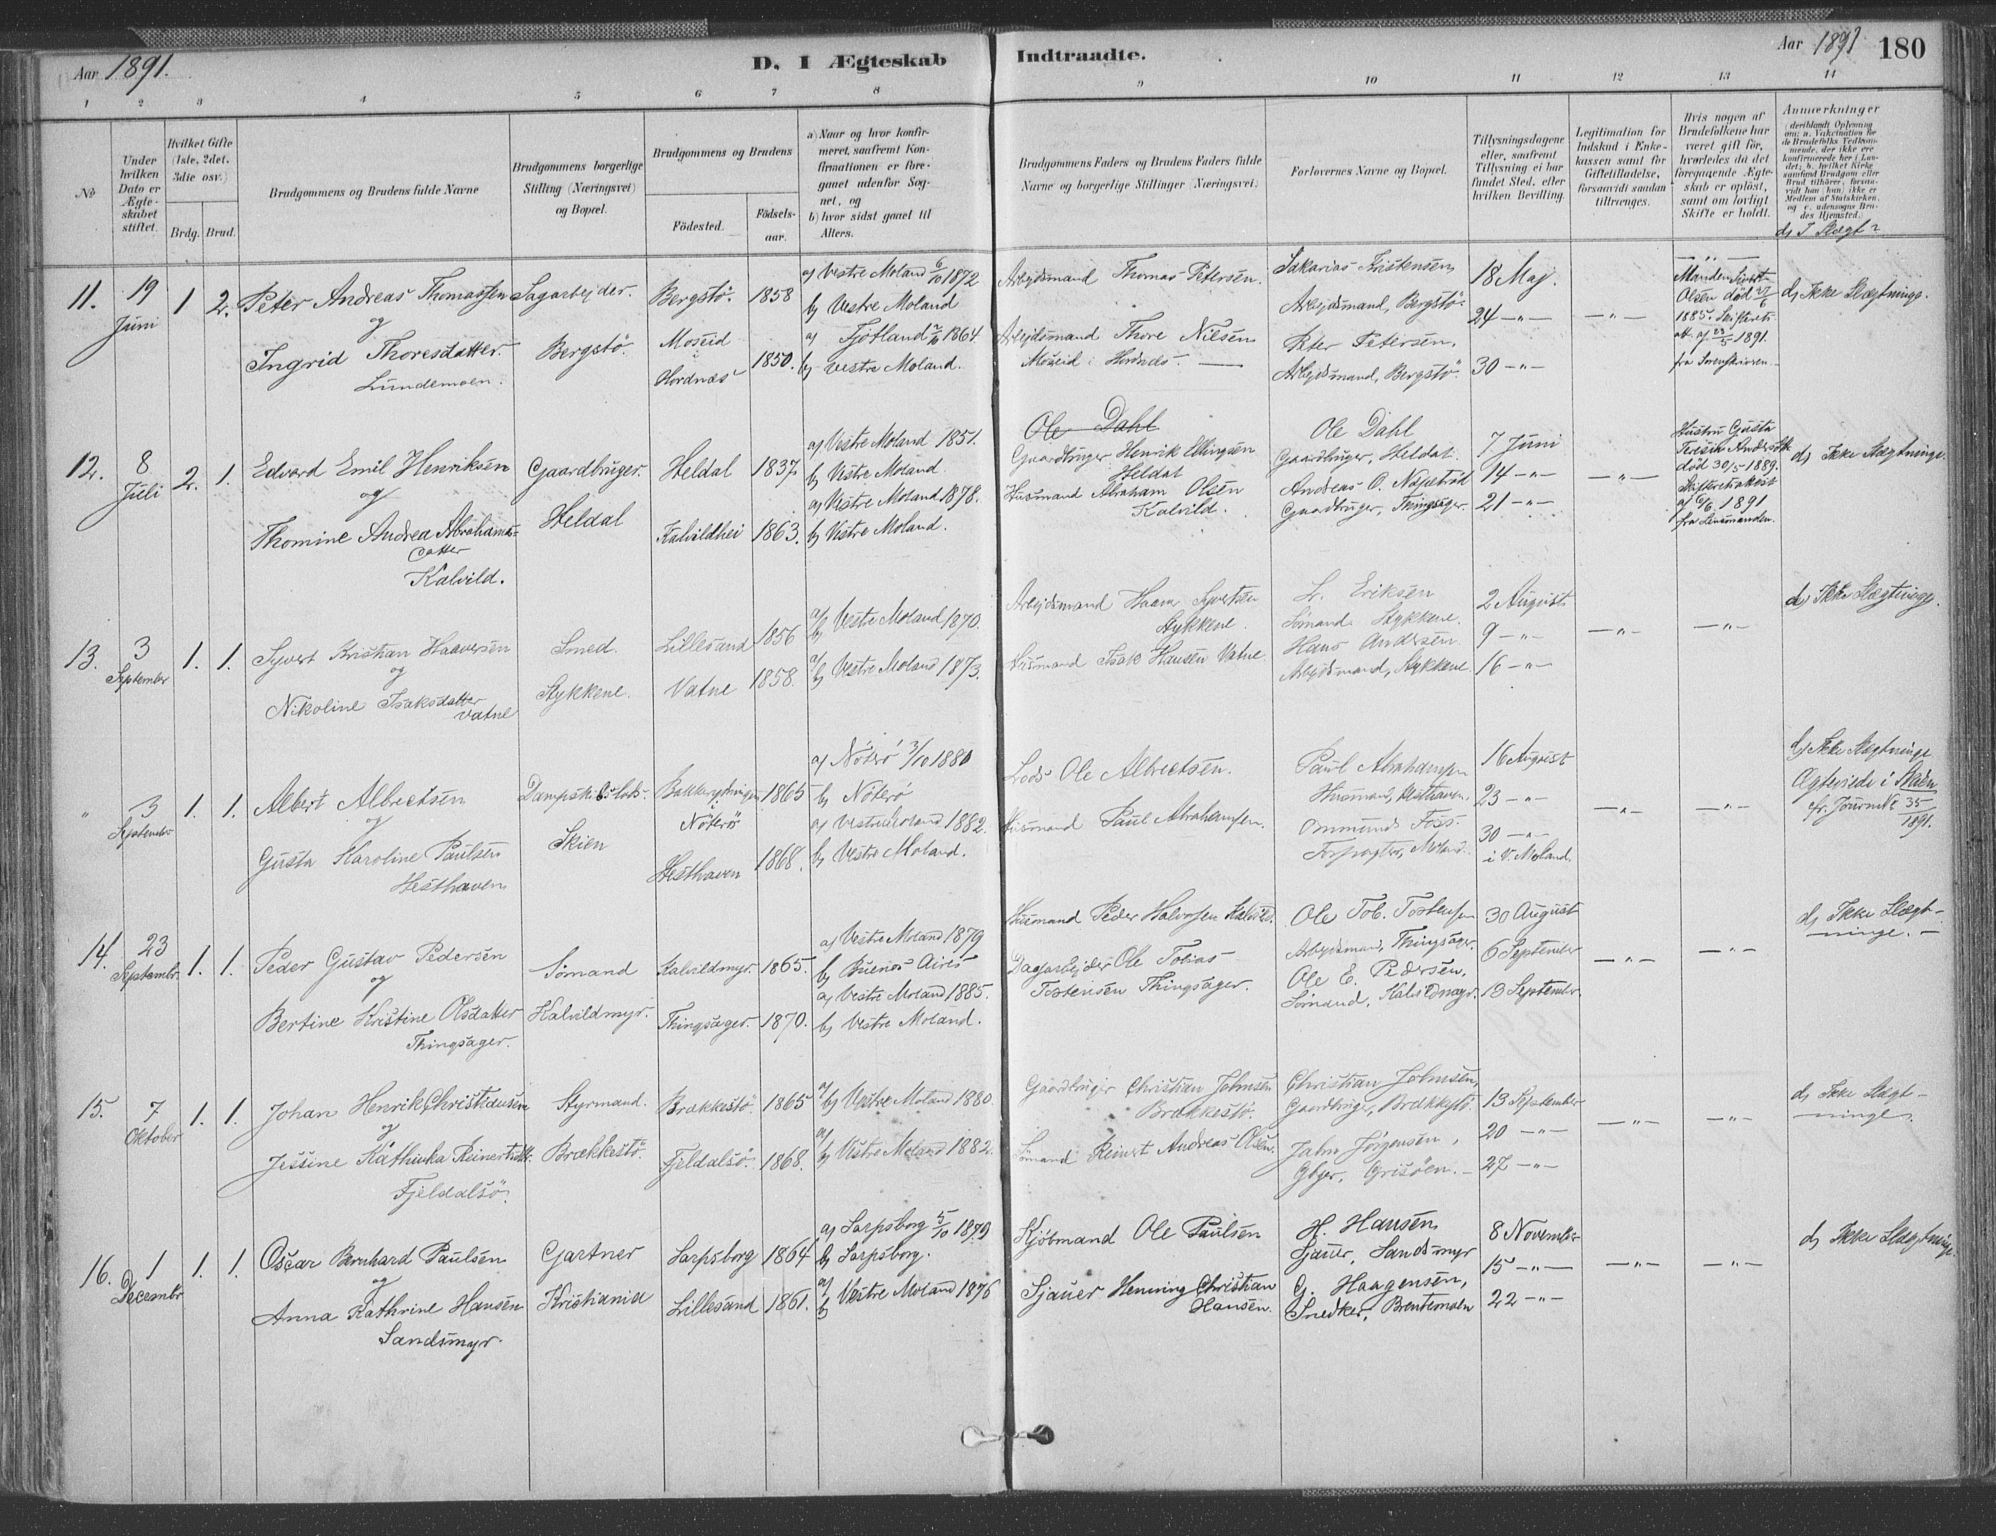 Aar 1891.
D. I Ægteskab Indtraadte.
Aar 1891 180
1 2 3 4 5 6 7 8 9 10 11 12 13 14
№
Under hvilken Dato er Ægteskabet stiftet.
Hvilket Gifte (1ste, 2det, 3die osv.)
Brdg. Brud.
Brudgommens og Brudens fulde Navne
Brudgommens borgerlige Stilling (Næringsvei) og Bopæl.
Brudgommens og Brudens
Födested. Födsels-aar.
a) Naar og hvor konfirmeret, saafremt Konfirmationen er foregaaet udenfor Sognet, og
b) hvor sidst gaaet til Alters.
Brudgommens Faders og Brudens Faders fulde Navne og borgerlige Stillinger (Næringsvei).
Forlovernes Navne og Bopæl.
Tillysningsdagene eller, saafremt Tillysning ei har fundet Sted, efter hvilken Bevilling.
Legitimation for Indskud i Enkekassen samt for Giftetilladelse, forsaavidt saadan tiltrænges.
Hvis nogen af Brudefolkene har været gift för, hvorledes da det foregaaende Ægteskab er oplöst, samt om lovligt Skifte er holdt.
Anmærkninger
d) I Slægt?
11. 19 Juni 1 2. Peter Andreas Thomassen
og
Ingrid Thoresdatter
Lundemoen.
Sagarbejder.
Bergstö.
Bergstö. 1858
Moseid i Hordnæs 1850.
a) Vestre Moland 6/10 1872
b) Vestre Moland
a) Fjotland 1864
b) Vestre Moland.
Arbejdsmand Thomas Petersen.
Arbejdsmand Thore Nilsen
Moseid i Hordnæs.
Sakarias Kristensen
Arbejdsmand, Bergstö.
Peter Petersen,
Arbejdsmand, Bergstö.
18 Maj.
24 -"-
30 -"-
-"-
Manden
Olsen död 27/6
1885. Skifteatt. af 23/5 1891.
fra Sorenskriveren.
d) Ikke Slægtninge.
12. 8 Juli 2. 1. Edvard Emil Henriksen
og
Thomine Andrea Abrahamsdatter
Kalvild.
Gaardbruger.
Heldal
Heldal 1837.
Kalvildhei 1863.
a) Vestre Moland 1851.
b) Vestre Moland.
a) Vestre Moland 1878.
b) Vestre Moland.
Ole Dahl
Gaardbruger Henrik Ellingsen
Heldal
Husmand Abraham Olsen
Kalvild.
Ole Dahl
Gaardbruger, Heldal.
Andreas O.
Gaardbruger, Thingsager.
7 Juni
14 -"-
21 -"-
-"-
Hustru Gusta
Teresia
död 30/5 1889.
Skifteretsattest
af 6/6 1891
fra Lensmanden.
d) Ikke Slægtninge.
13. 3 September 1. 1. Syvert Kristian Haaversen
og
Nikoline Isaksdatter
Vatne
Smed.
Stykkene.
Lillesand 1856
Vatne 1858.
a) b) Vestre Moland 1870.
a) b) Vestre Moland 1873.
Arbejdsmand Syvertsen
Stykkene.
Husmand Isak Hansen Vatne.
L. Eriksen
Sömand, Stykkene.
Hans Andersen
Arbejdsmand, Stykkene
2 August
9 -"-
16 -"-
-"-
-"-
d) Ikke Slægtninge.
" 3 September 1. 1. Albert Albrectsen
og
Gusta Karoline Paulsen
Hesthaven
Dampskibslods.
Skien
Nöterö 1865
Hesthaven 1868.
a) Nöterö 3/10 1880
b) Nöterö
a) Vestre Moland 1882.
b) Vestre Moland.
Lods Ole Albrectsen.
Husmand Paul Abrahamsen.
Paul Abrahamsen
Husmand, Hesthaven.
Ommund Foss.
Moland.
16 August
23 -"-
30 -"-
i V. Moland.
-"-
-"-
d) Ikke Slægtninge
Ægteviede i Skien
cfr. Journ № 35/1891.
14. 23 September. 1. 1. Peder Gustav Pedersen
og
Bertine Kristine Olsdatter
Thingsager.
Sömand
Kalvildmyr.
Kalvildmyr. 1865.
Thingsager. 1870.
a) Vestre Moland 1879
b) Buenos Aires
a) Vestre Moland 1885.
b) Vestre Moland.
Husmand Peder Halvorsen Kalvild.
Dagarbejder Ole Tobias
Tostensen Thingsager.
Ole Tob. Tostensen
Arbejdsmand, Thingsager.
Ole E. Pedersen,
Sömand, Kalvildmyr.
30 August
6 September
13 September
-"-
-"-
d) Ikke Slægtninge.
15. 7 Oktober 1. 1. Johan Henrik Christiansen
og
Jessine Kathinka Reinertsdtr.
Fjeldalsö.
Styrmand.
Brækkestö.
Brækkestö. 1865
Fjeldalsö. 1868.
a) b) Vestre Moland 1880.
a) b) Vestre Moland 1882.
Gaardbruger Christian Johnsen
Brækkestö.
Sömand Reinert Andreas Olsen.
Christian Johnsen,
Gaardbruger, Brækkestö.
Jahn Jörgensen,
Gbger, Grisöen.
13 September
20 -"-
27 -"-
-"-
-"-
d) Ikke Slægtninge.
16. 1 December 1. 1. Oscar Bernhard Paulsen
og
Anna Kathrine Hansen
Sandsmyr.
Gartner
Kristiania
Sarpsborg 1864
Lillesand 1861.
a) Sarpsborg 5/10 1879
b) Sarpsborg.
a) b) Vestre Moland 1876
Kjöbmand Ole Paulsen
Sjauer Henning Christian
Hansen.
H. Hansen
Sjauer, Sandsmyr
G. Haagensen,
Snedker, Brentemoen
8 November
15 -"-
22 -"-
-"-
-"-
d) Ikke Slægtninge.